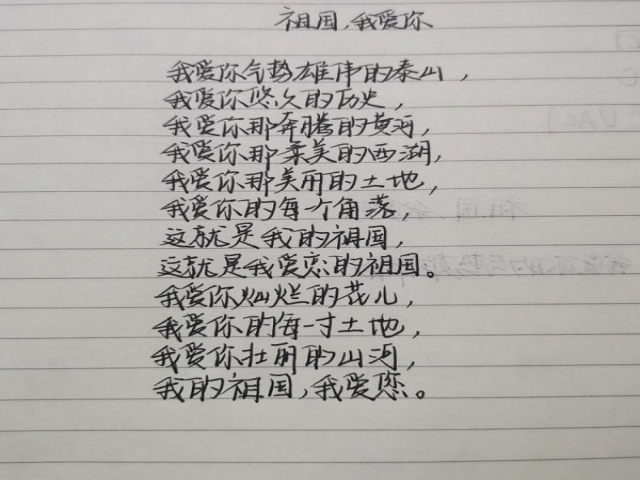 祖国,我爱你
我爱你气势雄伟的泰山,
我爱你悠久的历史,
我爱你那奔腾的黄河,
我爱你那柔美的西湖,
我爱你那美丽的土地,
我爱你的每一个角落,
这就是我的祖国,
这就是我爱恋的祖国。
我爱你灿烂的花儿,
我爱你的每一寸土地,
我爱你壮丽的山河,
我的祖国,我爱您。